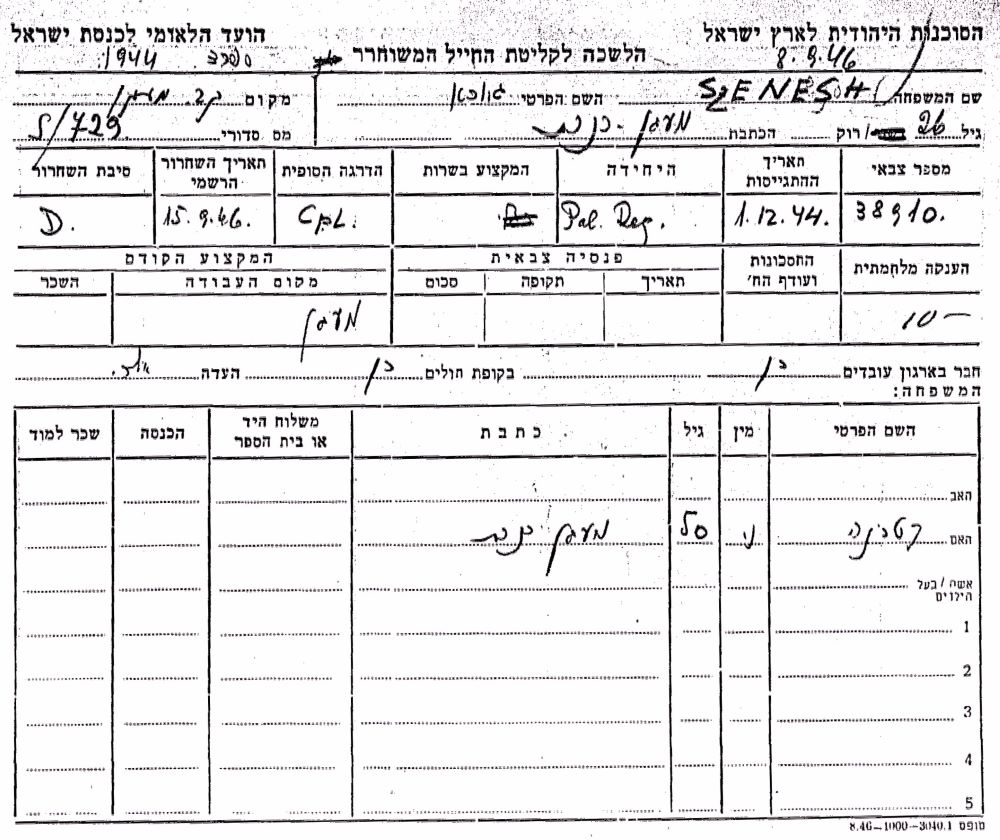 הסוכנות היהודית לארץ ישראל הועד הלאומי לכנסת ישראל
8.9.46 1944
הלשכה לקליטת החייל המשוחרר
שם המשפחה SZENESH השם הפרטי מקום קב. מעגן
גיל 26 / רוק הכתבת מעגן מס סדורי S/729
מספר צבאי תאריך ההתגייסות היחידה המקצוע בשרות הדרגה הסופית תאריך השחרור הרשמי סיבת השחרור
38910. 1.12.44. Pal. Reg. CpL. 15.9.46. D.
הענקה מלחמתית החסכונות ועודף הח' פנסיה צבאית המקצוע הקודם
תאריך תקופה סכום מקום העבודה השכר
10— מעגן
חבר בארגון עובדים כן בקופת חולים כן העדה
המשפחה:
השם הפרטי מין גיל כתבת משלוח היד או בית הספר הכנסה שכר למוד
האב
האם קטרינה נ' 50 מעגן
אשה / בעל
הילדים
1
2
3
4
5
טופס 8.46—1000—3040.1